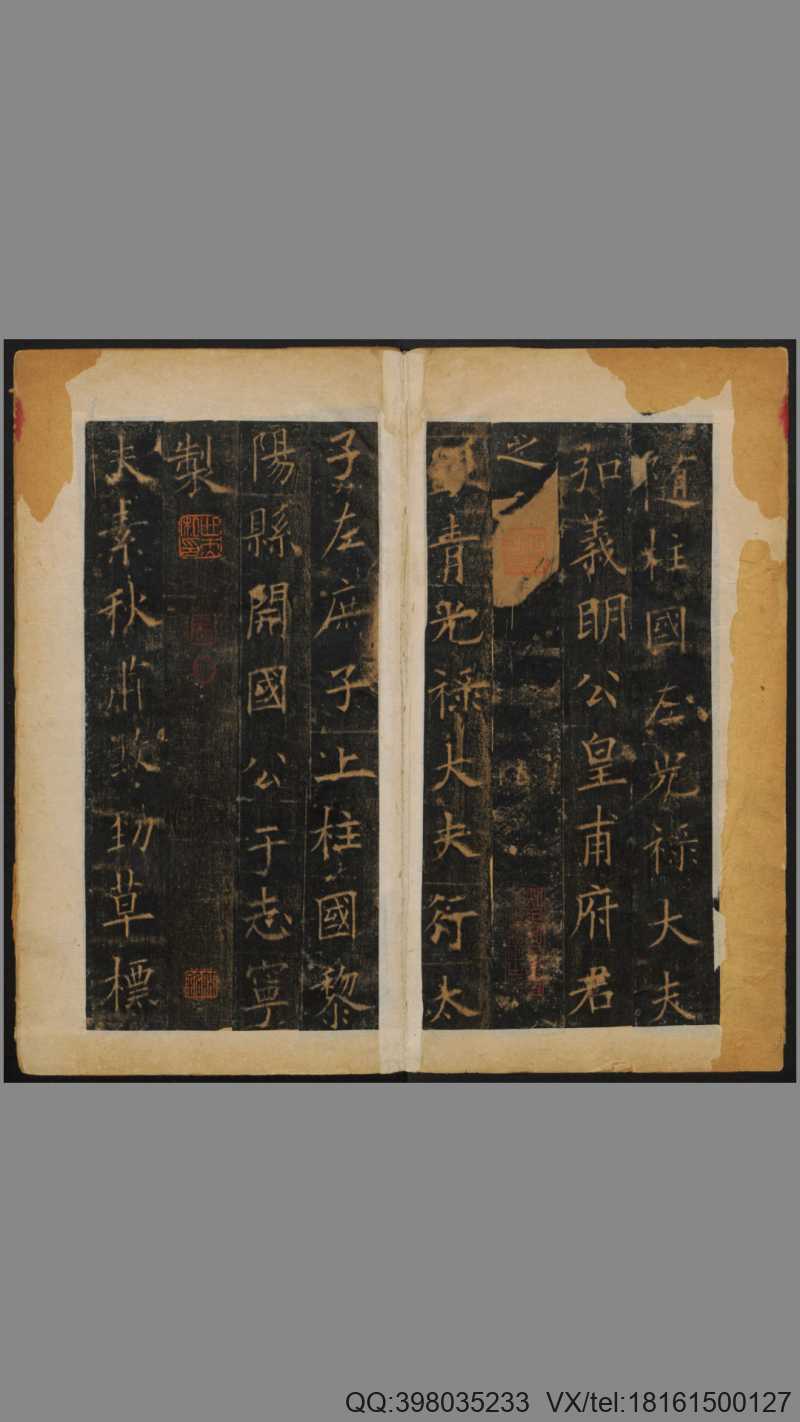 隨柱國左光祿大夫
弘義明公皇甫府君
之
青光祿大夫行太
子左庶子上柱國黎
陽縣開國公于志寧
製
夫素秋肅煞勁草標
QQ:398035233 VX/tel:18161500127